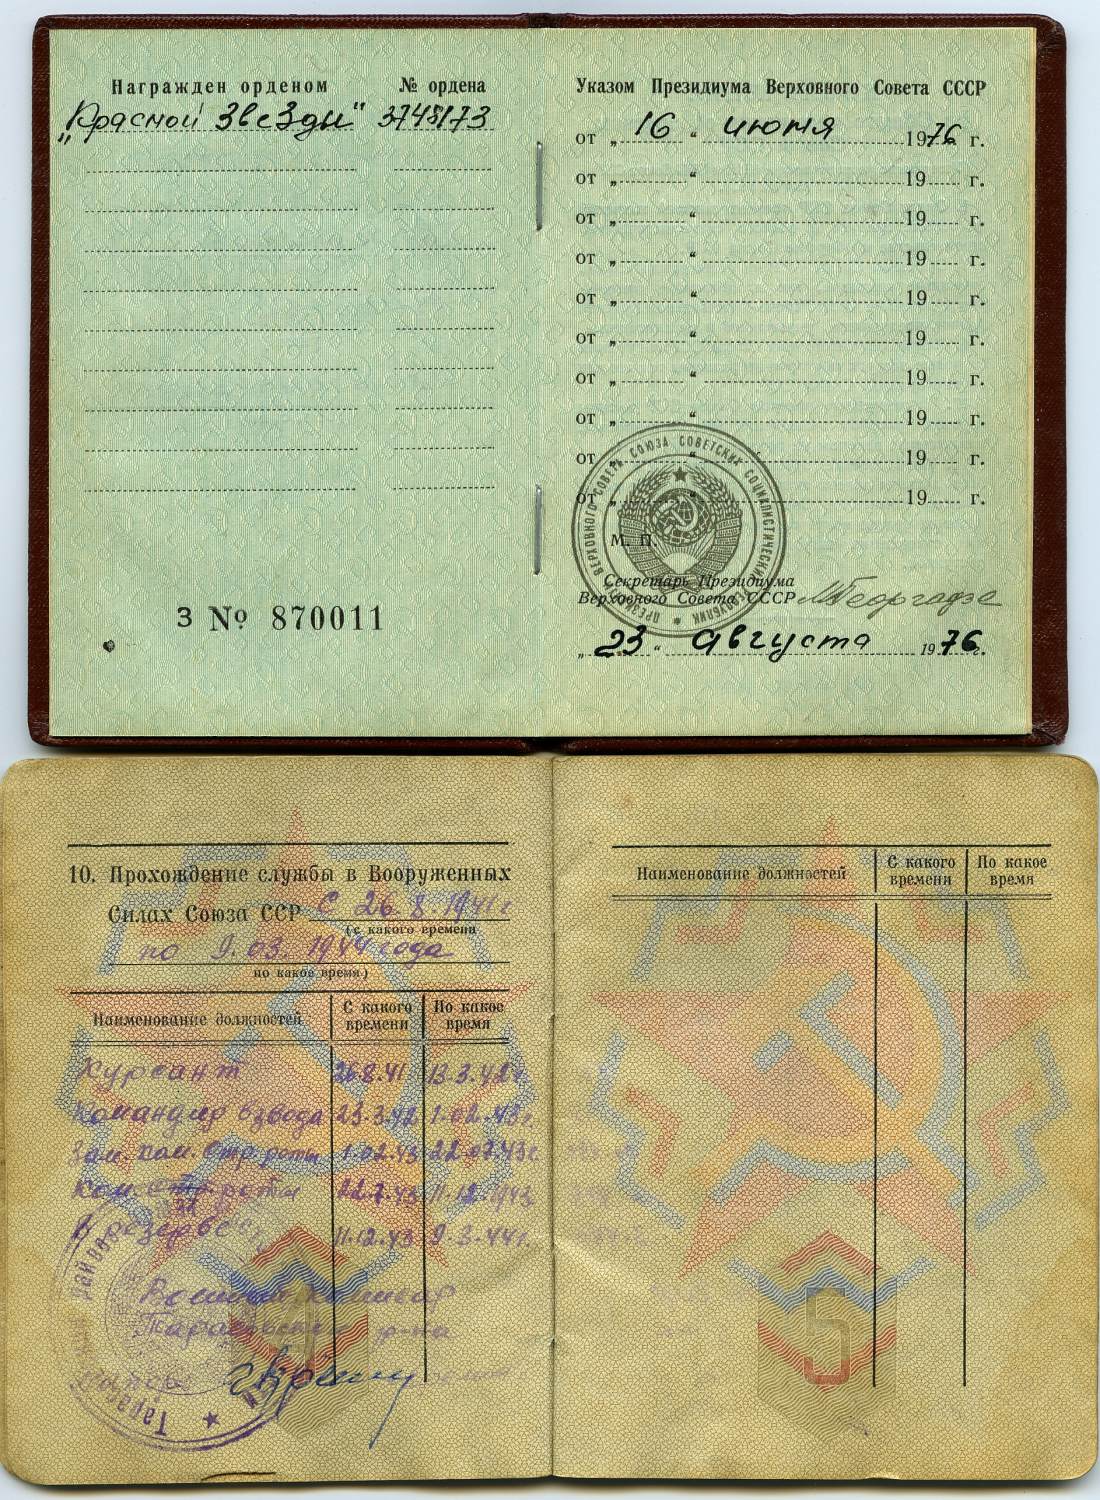 Награжден орденом № ордена
„Красной Звезды“ 3748173
З № 870011
Указом Президиума Верховного Совета СССР
от „ 16 “ июня 1976 г.
от „ “ 19 г.
от „ “ 19 г.
от „ “ 19 г.
от „ “ 19 г.
от „ “ 19 г.
от „ “ 19 г.
от „ “ 19 г.
от „ “ 19 г.
от „ “ 19 г.
М. П.
ПРЕЗИДИУМ ВЕРХОВНОГО СОВЕТА СОЮЗА СОВЕТСКИХ СОЦИАЛИСТИЧЕСКИХ РЕСПУБЛИК
Секретарь Президиума
Верховного Совета СССР М Георгадзе
„ 23 “ августа 1976 г.
10. Прохождение службы в Вооруженных
Силах Союза ССР С 26.8.1941г
(с какого времени
по 9.03.1944 года
по какое время)
Наименование должностей С какого времени По какое время
Курсант 26.8.41 13.3.42г.
Командир взвода 23.3.42 1.02.43г.
Зам. ком. стр. роты 1.02.43 22.07.43г.
Ком. стр. роты 22.7.43 11.12.1943
В резерве 11.12.43 9.3.44г.
Военный комиссар
р-на
Наименование должностей С какого времени По какое время
5